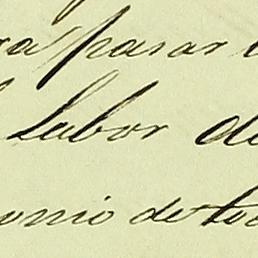 ra pasar
labor de
onio de to